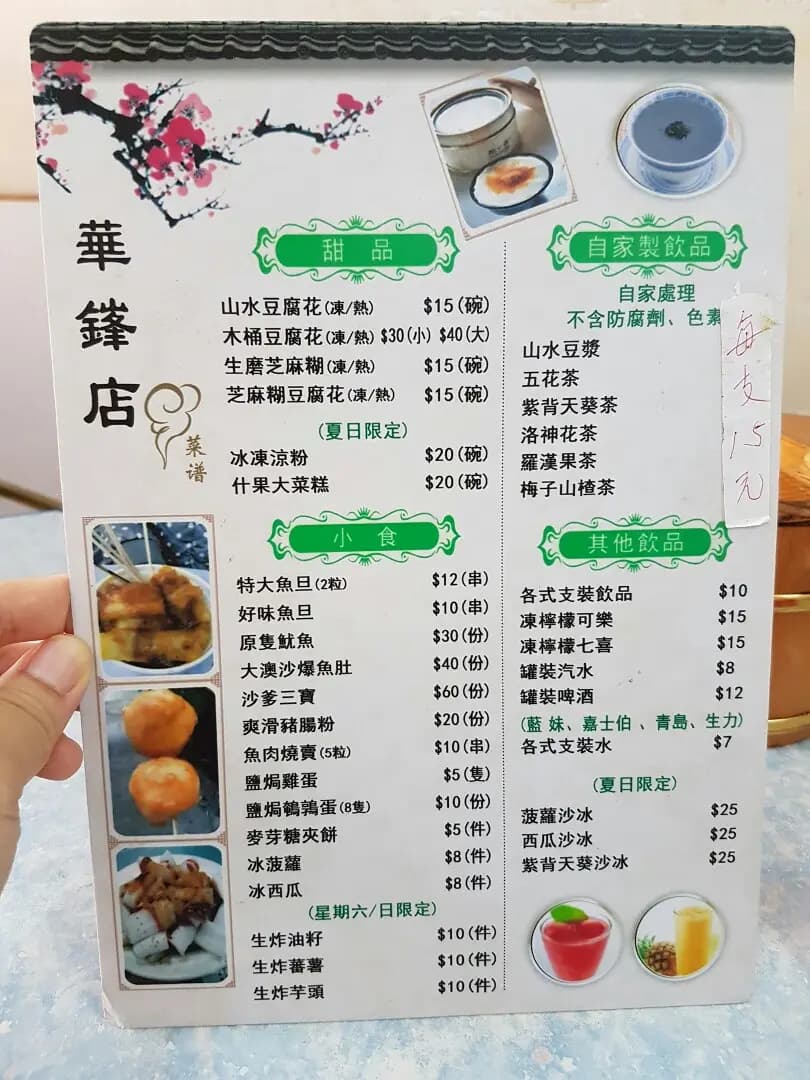 華鋒店
菜谱
甜 品
山水豆腐花(凍/熱) $15(碗)
木桶豆腐花(凍/熱) $30(小) $40(大)
生磨芝麻糊(凍/熱) $15(碗)
芝麻糊豆腐花(凍/熱) $15(碗)
(夏日限定)
冰凍涼粉 $20(碗)
什果大菜糕 $20(碗)
小 食
特大魚旦(2粒) $12(串)
好味魚旦 $10(串)
原隻魷魚 $30(份)
大澳沙爆魚肚 $40(份)
沙爹三寶 $60(份)
爽滑豬腸粉 $20(份)
魚肉燒賣(5粒) $10(串)
鹽焗雞蛋 $5(隻)
鹽焗鵪鶉蛋(8隻) $10(份)
麥芽糖夾餅 $5(件)
冰菠蘿 $8(件)
冰西瓜 $8(件)
(星期六/日限定)
生炸油籽 $10(件)
生炸蕃薯 $10(件)
生炸芋頭 $10(件)
自家製飲品
自家處理
不含防腐劑、色素
山水豆漿
五花茶
紫背天葵茶
洛神花茶
羅漢果茶
梅子山楂茶
每支15元
其他飲品
各式支裝飲品 $10
凍檸檬可樂 $15
凍檸檬七喜 $15
罐裝汽水 $8
罐裝啤酒 $12
(藍 妹、嘉士伯 、青島、生力)
各式支裝水 $7
(夏日限定)
菠蘿沙冰 $25
西瓜沙冰 $25
紫背天葵沙冰 $25